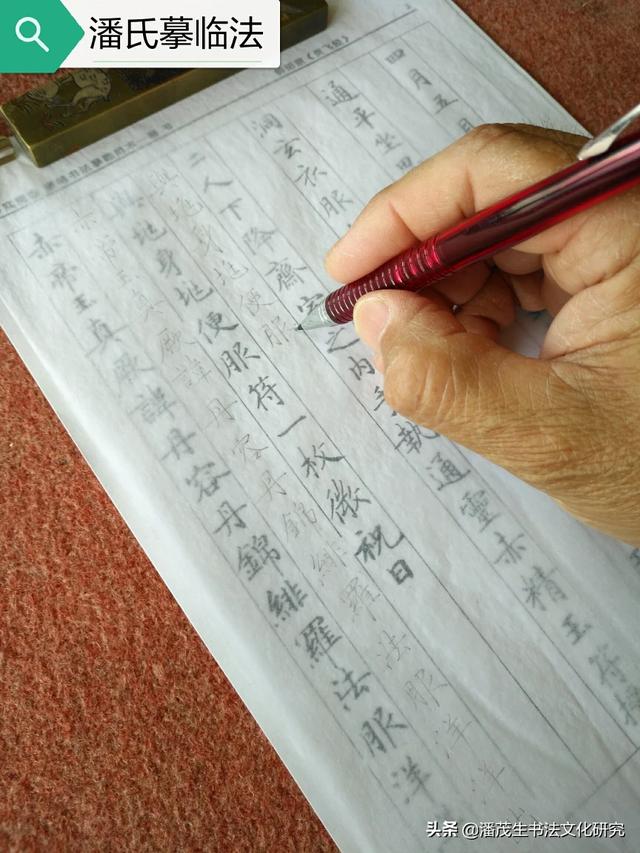 潘氏摹临法
四月五
通平坐甲
洞玄衣服
二人下降齋室之内手執通靈赤精玉符授
與地身地便服
與地身地便服符一枚微祝日
真厥諱丹容丹錦緋羅法服洋洋
赤帝玉真厥諱丹容丹錦緋羅法服洋
头条 @潘茂生书法文化研究